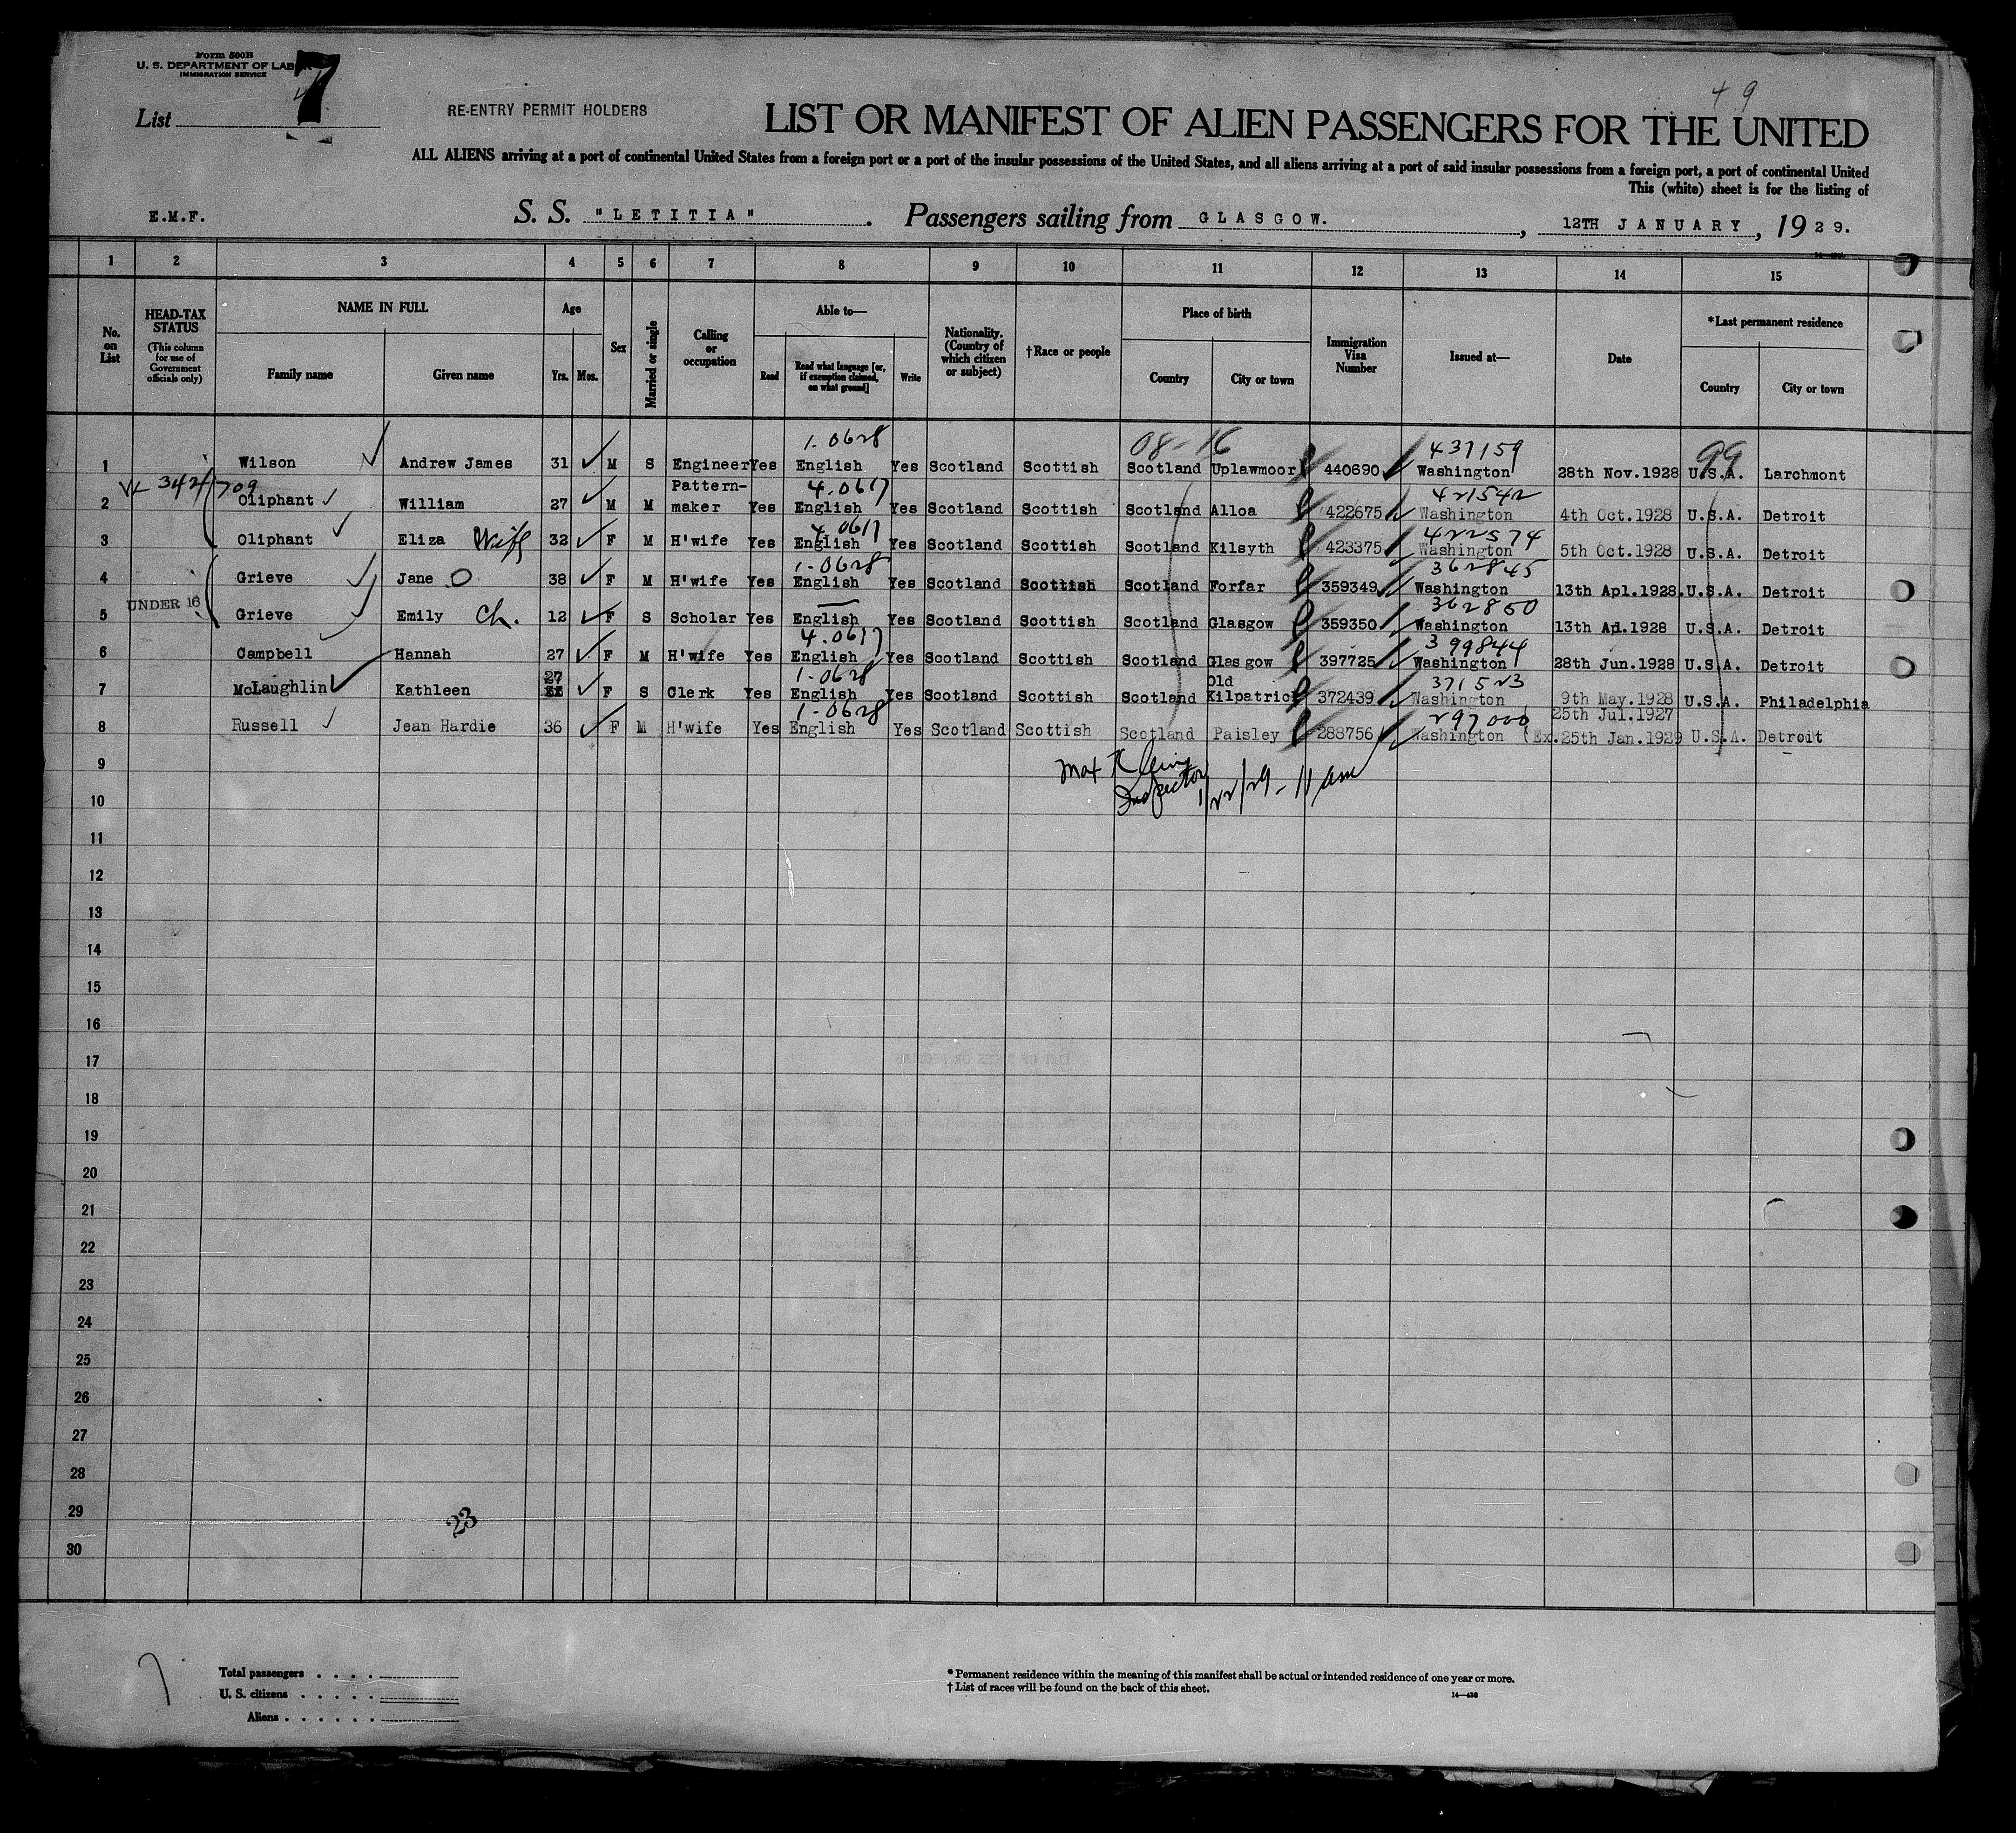 Form 500B
U. S. DEPARTMENT OF LABOR
IMMIGRATION SERVICE
7
List
RE-ENTRY PERMIT HOLDERS
49
LIST OR MANIFEST OF ALIEN PASSENGERS FOR THE UNITED
ALL ALIENS arriving at a port of continental United States from a foreign port or a port of the insular possessions of the United States, and all aliens arriving at a port of said insular possessions from a foreign port, a port of continental United
This (white) sheet is for the listing of
E.M.F. S. S. "LETITIA". Passengers sailing from GLASGOW., 12TH JANUARY, 1929.
1 2 3 4 5 6 7 8 9 10 11 12 13 14 15
No. on List
HEAD-TAX STATUS (This column for use of Government officials only)
NAME IN FULL
Family name Given name
Age
Yrs. Mos.
Sex
Married or single
Calling or occupation
Able to—
Read Read what language [or, if exemption claimed, on what ground] Write
Nationality. (Country of which citizen or subject)
†Race or people
Place of birth
Country City or town
Immigration Visa Number
Issued at—
Date
*Last permanent residence
Country City or town
1-0628 08-16 437159 99
1 Wilson Andrew James 31 M S Engineer Yes English Yes Scotland Scottish Scotland Uplawmoor 440690 Washington 28th Nov.1928 U.S.A. Larchmont
342/709 4.0617 421542
2 Oliphant William 27 M M Pattern-maker Yes English Yes Scotland Scottish Scotland Alloa 422675 Washington 4th Oct.1928 U.S.A. Detroit
4.0617 422574
3 Oliphant Eliza Wife 32 F M H'wife Yes English Yes Scotland Scottish Scotland Kilsyth 423375 Washington 5th Oct.1928 U.S.A. Detroit
1-0628 362845
4 Grieve Jane 38 F M H'wife Yes English Yes Scotland Scottish Scotland Forfar 359349 Washington 13th Apl.1928. U.S.A. Detroit
UNDER 16 362850
5 Grieve Emily Ch. 12 F S Scholar Yes English Yes Scotland Scottish Scotland Glasgow 359350 Washington 13th Apl.1928 U.S.A. Detroit
4.0617 399844
6 Campbell Hannah 27 F M H'wife Yes English Yes Scotland Scottish Scotland Glasgow 397725 Washington 28th Jun.1928 U.S.A. Detroit
27 1-0628 371523
7 McLaughlin Kathleen F S Clerk Yes English Yes Scotland Scottish Scotland Old Kilpatrick 372439 Washington 9th May.1928 U.S.A. Philadelphia
1-0628 297000 25th Jul.1927
8 Russell Jean Hardie 36 F M H'wife Yes English Yes Scotland Scottish Scotland Paisley 288756 Washington (Ex.25th Jan.1929 U.S.A. Detroit
9 Max
Inspector 1/22/29 - 11 am
10
11
12
13
14
15
16
17
18
19
20
21
22
23
24
25
26
27
28
29
23
30
Total passengers
U. S. citizens
Aliens
*Permanent residence within the meaning of this manifest shall be actual or intended residence of one year or more.
†List of races will be found on the back of this sheet.
14—436